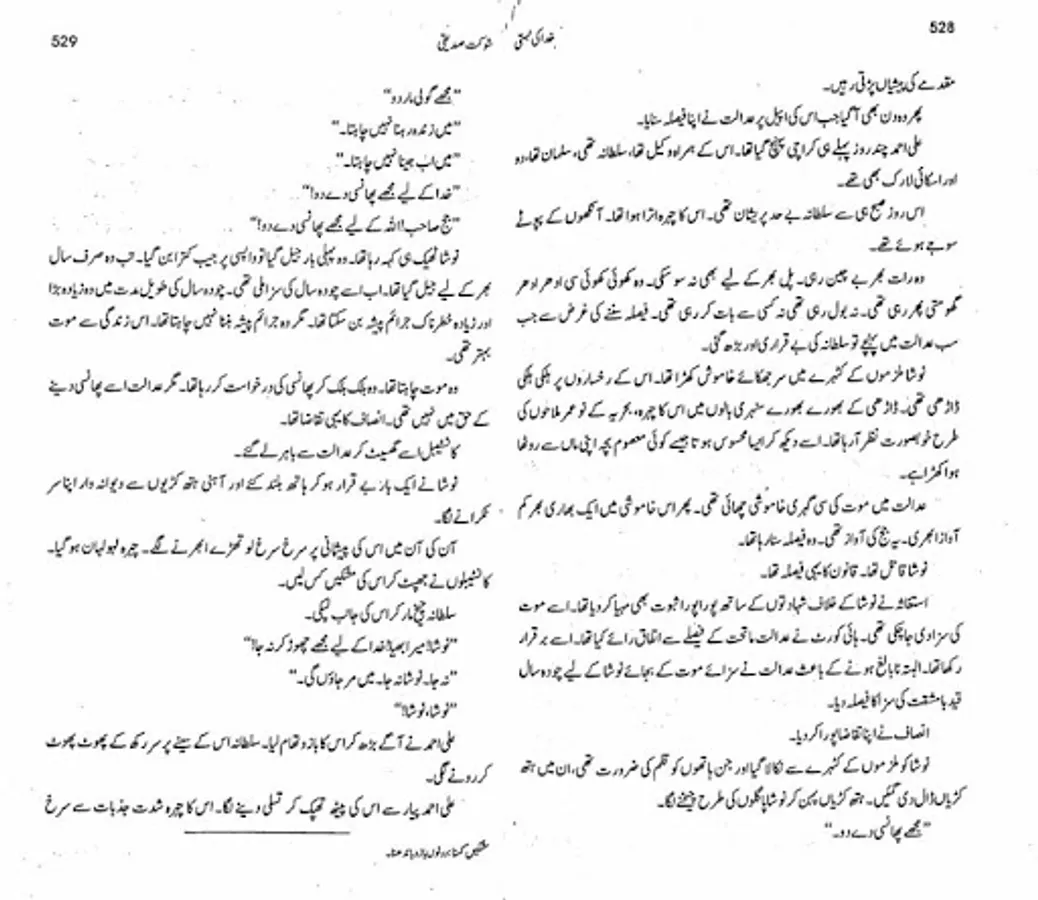 528
مقدمے کی پیشیاں پڑتی رہیں۔
پھر وہ دن بھی آ گیا جب اس کی اپیل پر عدالت نے اپنا فیصلہ سنایا۔
علی احمد چند روز پہلے ہی کراچی پہنچ گیا تھا۔ اس کے ہمراہ وکیل تھا، سلطانہ تھی، سلمان تھا، وہ
اور اسکائی لارک بھی تھے۔
اس روز صبح ہی سے سلطانہ بے حد پریشان تھی۔ اس کا چہرہ اترا ہوا تھا۔ آنکھوں کے پپوٹے
سوجے ہوئے تھے۔
وہ رات بھر بے چین رہی۔ پل بھر کے لیے بھی نہ سو سکی۔ وہ کھوئی کھوئی سی ادھر ادھر
گھومتی پھر رہی تھی۔ نہ بول رہی تھی نہ کسی سے بات کر رہی تھی۔ فیصلہ سننے کی غرض سے جب
سب عدالت میں پہنچے تو سلطانہ کی بے قراری اور بڑھ گئی۔
نوشا ملزموں کے کٹہرے میں سر جھکائے خاموش کھڑا تھا۔ اس کے رخساروں پر ہلکی ہلکی
ڈاڑھی تھی۔ ڈاڑھی کے بھورے بھورے سنہری بالوں میں اس کا چہرہ، بحریہ کے نوعمر ملاحوں کی
طرح خوبصورت نظر آ رہا تھا۔ اسے دیکھ کر ایسا محسوس ہوتا جیسے کوئی معصوم بچہ اپنی ماں سے روٹھا
ہوا کھڑا ہے۔
عدالت میں موت کی سی گہری خاموشی چھائی تھی۔ پھر اس خاموشی میں ایک بھاری بھرکم
آواز ابھری۔ یہ جج کی آواز تھی۔ وہ فیصلہ سنا رہا تھا۔
نوشا قاتل تھا۔ قانون کا یہی فیصلہ تھا۔
استغاثہ نے نوشا کے خلاف شہادتوں کے ساتھ پورا پورا ثبوت بھی مہیا کر دیا تھا۔ اسے موت
کی سزا دی جا چکی تھی۔ ہائی کورٹ نے عدالت ماتحت کے فیصلے سے اتفاق رائے کیا تھا۔ اسے برقرار
رکھا تھا۔ البتہ نابالغ ہونے کے باعث عدالت نے سزائے موت کے بجائے نوشا کے لیے چودہ سال
قید بامشقت کی سزا کا فیصلہ دیا۔
انصاف نے اپنا تقاضا پورا کر دیا۔
نوشا کو ملزموں کے کٹہرے سے نکالا گیا اور جن ہاتھوں کو قلم کی ضرورت تھی، ان میں ہتھ
کڑیاں ڈال دی گئیں۔ ہتھ کڑیاں پہن کر نوشا پاگلوں کی طرح چیخنے لگا۔
”مجھے پھانسی دے دو۔“
خدا کی بستی
شوکت صدیقی
529
”مجھے گولی مار دو“
”میں زندہ رہنا نہیں چاہتا۔“
”میں اب جینا نہیں چاہتا۔“
”خدا کے لیے مجھے پھانسی دے دو!“
”جج صاحب! اللہ کے لیے مجھے پھانسی دے دو!“
نوشا ٹھیک ہی کہہ رہا تھا۔ وہ پہلی بار جیل گیا تو واپسی پر جیب کترا بن گیا۔ تب وہ صرف سال
بھر کے لیے جیل گیا تھا۔ اب اسے چودہ سال کی سزا ملی تھی۔ چودہ سال کی طویل مدت میں وہ زیادہ بڑا
اور زیادہ خطرناک جرائم پیشہ بن سکتا تھا۔ مگر وہ جرائم پیشہ بننا نہیں چاہتا تھا۔ اس زندگی سے موت
بہتر تھی۔
وہ موت چاہتا تھا۔ وہ بلک بلک کر پھانسی کی درخواست کر رہا تھا۔ مگر عدالت اسے پھانسی دینے
کے حق میں نہیں تھی۔ انصاف کا یہی تقاضا تھا۔
کانسٹیبل اسے گھسیٹ کر عدالت سے باہر لے گئے۔
نوشا نے ایک بار بے قرار ہو کر ہاتھ بلند کئے اور آہنی ہتھ کڑیوں سے دیوانہ وار اپنا سر
ٹکرانے لگا۔
آن کی آن میں اس کی پیشانی پر سرخ سرخ لوتھڑے ابھرنے لگے۔ چہرہ لہولہان ہو گیا۔
کانسٹیبلوں نے جھپٹ کر اس کی مشکیں کس لیں۔
سلطانہ چیخ مار کر اس کی جانب لپکی۔
”نوشا! میرا بھیا! خدا کے لیے مجھے چھوڑ کر نہ جا!“
”نہ جا۔ نوشا نہ جا۔ میں مر جاؤں گی۔“
”نوشا، نوشا!“
علی احمد نے آگے بڑھ کر اس کا بازو تھام لیا۔ سلطانہ اس کے سینے پر سر رکھ کے پھوٹ پھوٹ
کر رونے لگی۔
علی احمد پیار سے اس کی پیٹھ تھپک کر تسلی دینے لگا۔ اس کا چہرہ شدت جذبات سے سرخ
مشکیں کسنا: دونوں بازو باندھنا۔